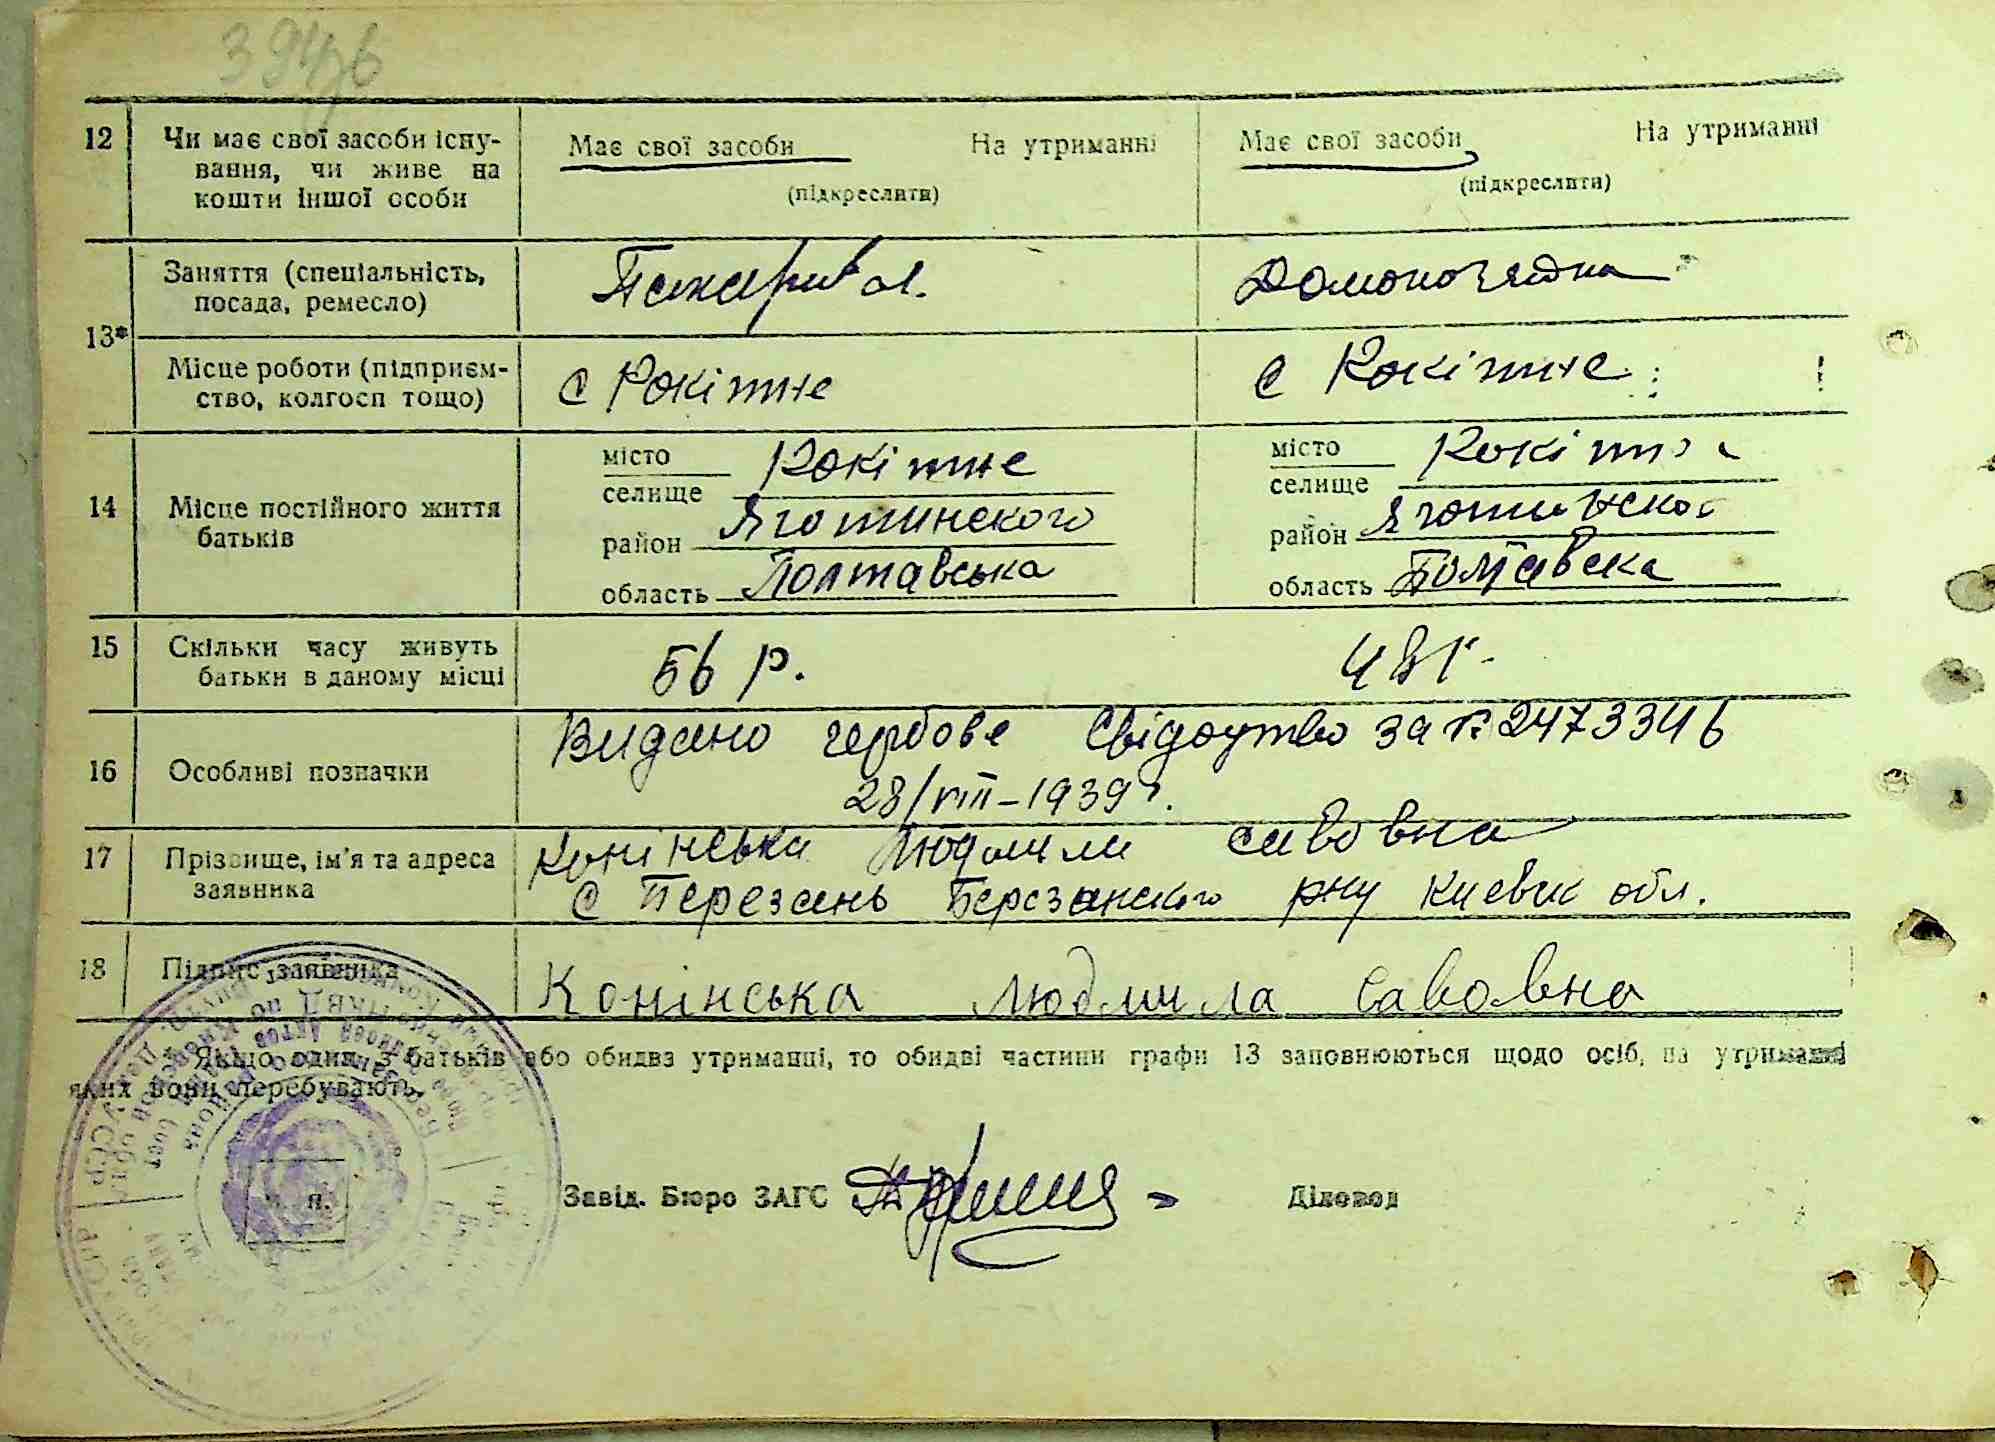 394зв
12 Чи має свої засоби існу-
вання, чи живе на
кошти іншої особи
Має свої засоби На утриманні
(підкреслити)
Має свої засоби На утриманні
(підкреслити)
13*
Заняття (спеціальність,
посада, ремесло)
Домогосядна
Місце роботи (підприєм-
ство, колгосп тощо)
с Рокітне
с Рокітне
14 Місце постійного життя
батьків
місто
селище Рокітне
район Яготинского
область Полтавська
місто
селище Рокітне
район Яготинского
область Полтавска
15 Скільки часу живуть
батьки в даному місці
56 р. 48 г.
16 Особливі позначки
Видано гербове свідоцтво за № 2473346
28/VIII-1939 г.
17 Прізвище, ім'я та адреса
заявника
Конінська Людмили Савовна
с Березань Березанского рну Киевск обл.
18 Підпис заявника
Конінська Людмила Савовна
Якщо один з батьків або обидва утриманці, то обидві частини графи 13 заповнюються щодо осіб, на утриманні
яких вони перебувають.
п.
Завід. Бюро ЗАГС Діловод